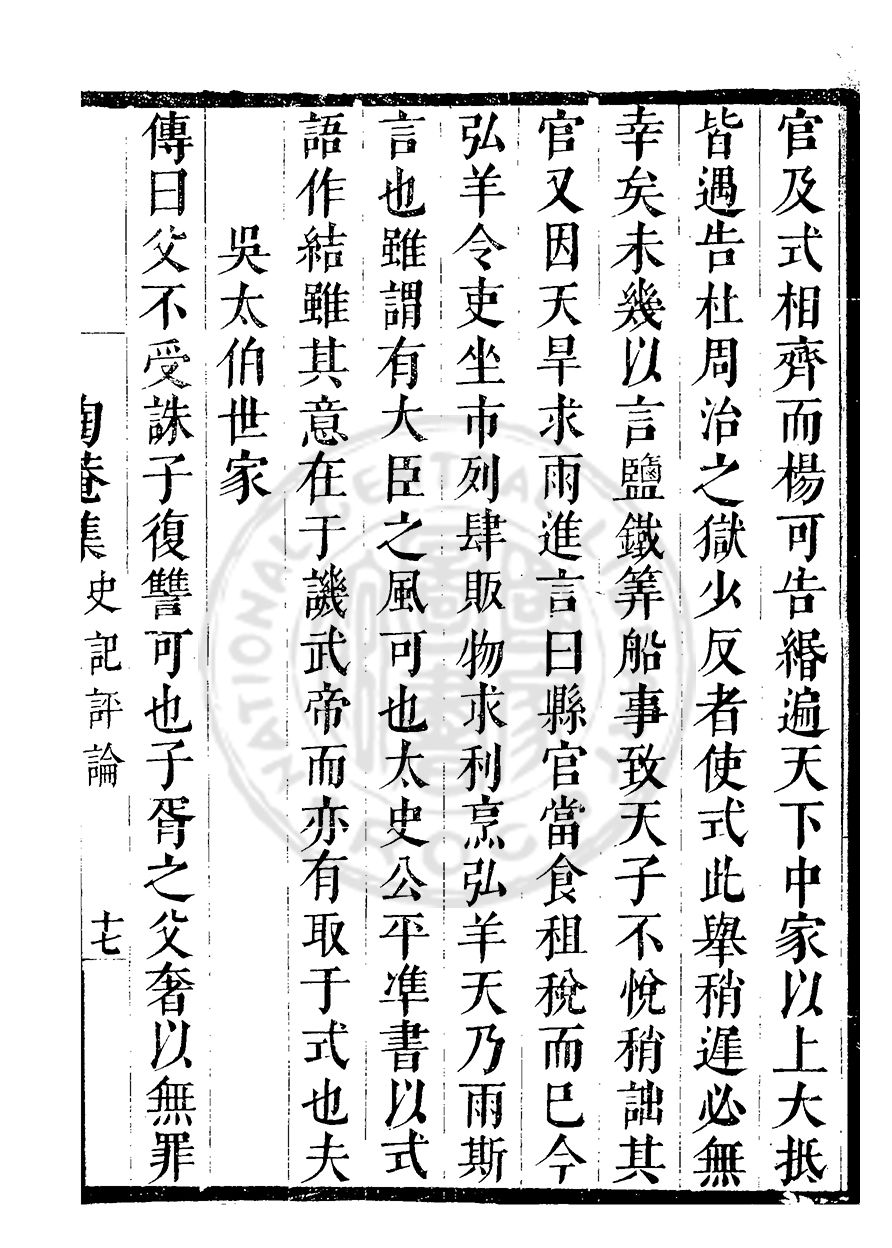 官及式相齊而楊可告緡遍天下中家以上大抵
皆遇告杜周治之獄少反者使式此舉稍遲必無
幸矣未幾以言鹽鐵筭船事致天子不悅稍詘其
官又因天旱求雨進言曰縣官當食租稅而巳今
弘羊令吏坐市列肆販物求利烹弘羊天乃雨斯
言也雖謂有大臣之風可也太史公平準書以式
語作結雖其意在于譏武帝而亦有取于式也夫
吳太伯世家
傳曰父不受誅子復讐可也子胥之父奢以無罪
陶菴集 史記評論 十七